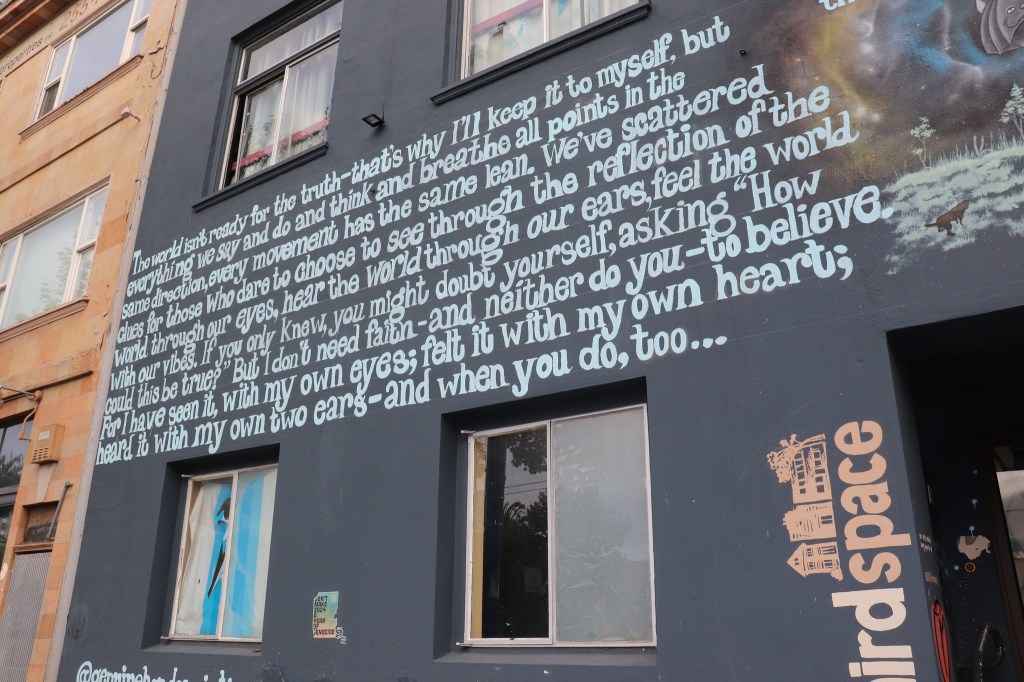 The world isn't ready for the truth-that's why I'll keep it to myself, but
everything we say and do and think and breathe all points in the
same direction, every movement has the same lean. We've scattered
clues for those who dare to choose to see through the reflection of the
world through our eyes, hear the world through our ears, feel the world
with our vibes. If you only knew, you might doubt yourself, asking "How
could this be true?" But I don't need faith-and neither do you-to believe.
For I have seen it, with my own eyes; felt it with my own heart;
heard it with my own two ears-and when you do, too...
properties
DON'T
MAKE
2024
A
YEAR
OF
GENOCIDE
birdspace